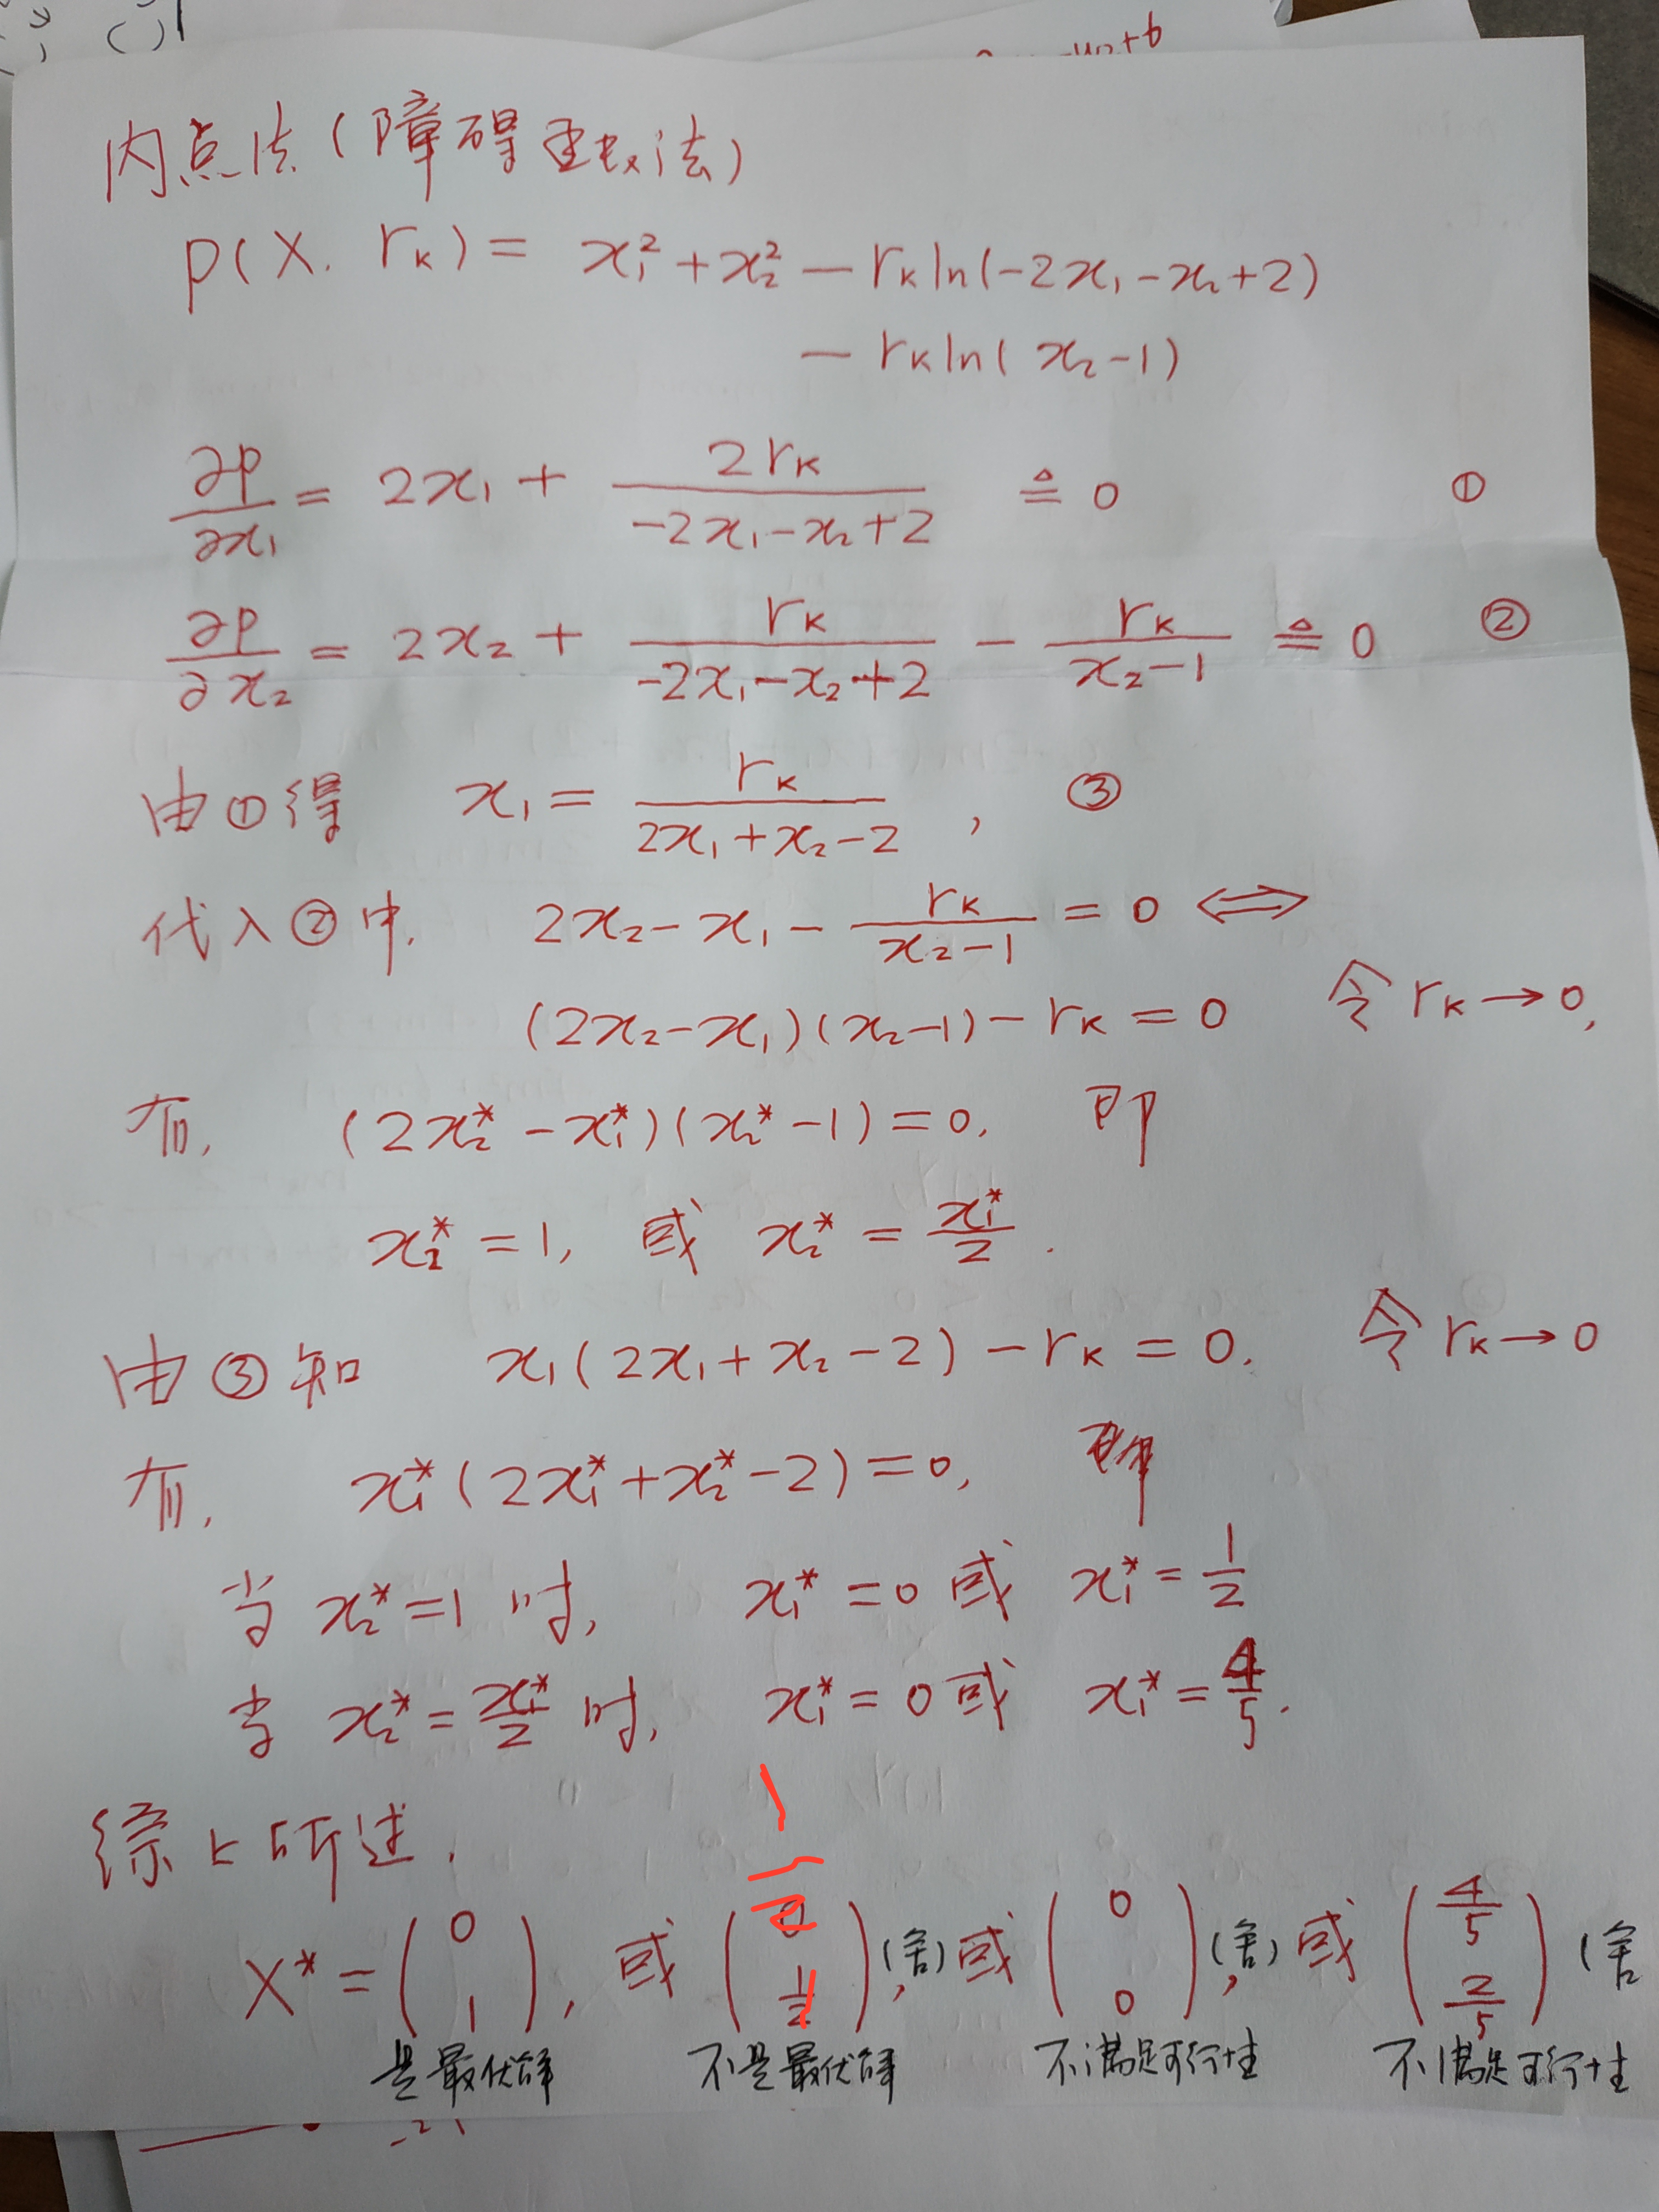 -4x₂+6
内点法(障碍函数法)
P(X, rₖ) = x₁² + x₂² - rₖ ln(-2x₁ - x₂ + 2)
- rₖ ln(x₂ - 1)
∂P/∂x₁ = 2x₁ + 2rₖ/(-2x₁ - x₂ + 2) ≜ 0 ①
∂P/∂x₂ = 2x₂ + rₖ/(-2x₁ - x₂ + 2) - rₖ/(x₂ - 1) ≜ 0 ②
由①得 x₁ = rₖ/(2x₁ + x₂ - 2), ③
代入②中, 2x₂ - x₁ - rₖ/(x₂ - 1) = 0 ⟺
(2x₂ - x₁)(x₂ - 1) - rₖ = 0 令 rₖ → 0,
有, (2x₂* - x₁*)(x₂* - 1) = 0, 即
x₂* = 1, 或 x₂* = x₁*/2.
由③知 x₁(2x₁ + x₂ - 2) - rₖ = 0, 令 rₖ → 0
有, x₁*(2x₁* + x₂* - 2) = 0, 即
当 x₂* = 1 时, x₁* = 0 或 x₁* = 1/2
当 x₂* = x₁*/2 时, x₁* = 0 或 x₁* = 4/5.
综上所述,
X* = (0 1), 或 (1/2 1)(舍), 或 (0 0)(舍), 或 (4/5 2/5)(舍
是最优解 不是最优解 不满足可行性 不满足可行性